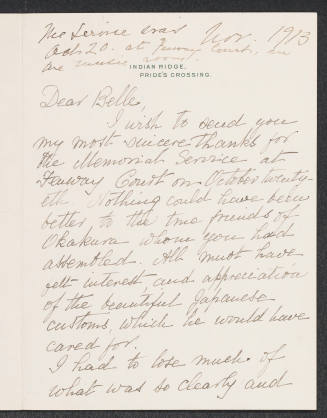 The Service was Nov. 1913
Oct. 20. at Fenway Court, in
the music room.
INDIAN RIDGE,
PRIDE'S CROSSING.
Dear Belle,
I wish to send you
my most sincere thanks for
the Memorial Service at
Fenway Court on October twenty-
eth. Nothing could have been
better to the true friends of
Okakura whom you had
assembled. All must have
felt interest, and appreciation
of the beautiful Japanese
customs, which he would have
cared for.
I had to lose much of
what was so clearly and